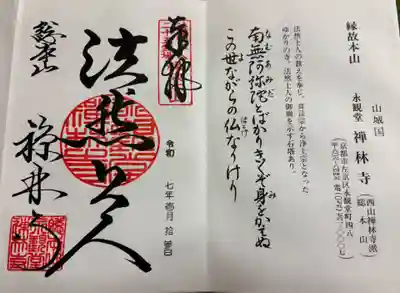 縁故本山
山城国
永観堂 禅林寺
(西山禅林寺派
総本山)
(京都市左京区永観堂町四八
法然上人の教えを奉じ、真言宗から浄土宗となった
ゆかりの寺。法然上人の御廟を示す石塔あり。
南無阿弥陀とばかりきくぞ身をかへぬ
この世ながらの仏なりけり
奉拝
法然上人
令和 七年壱月拾
総本山
禅林寺